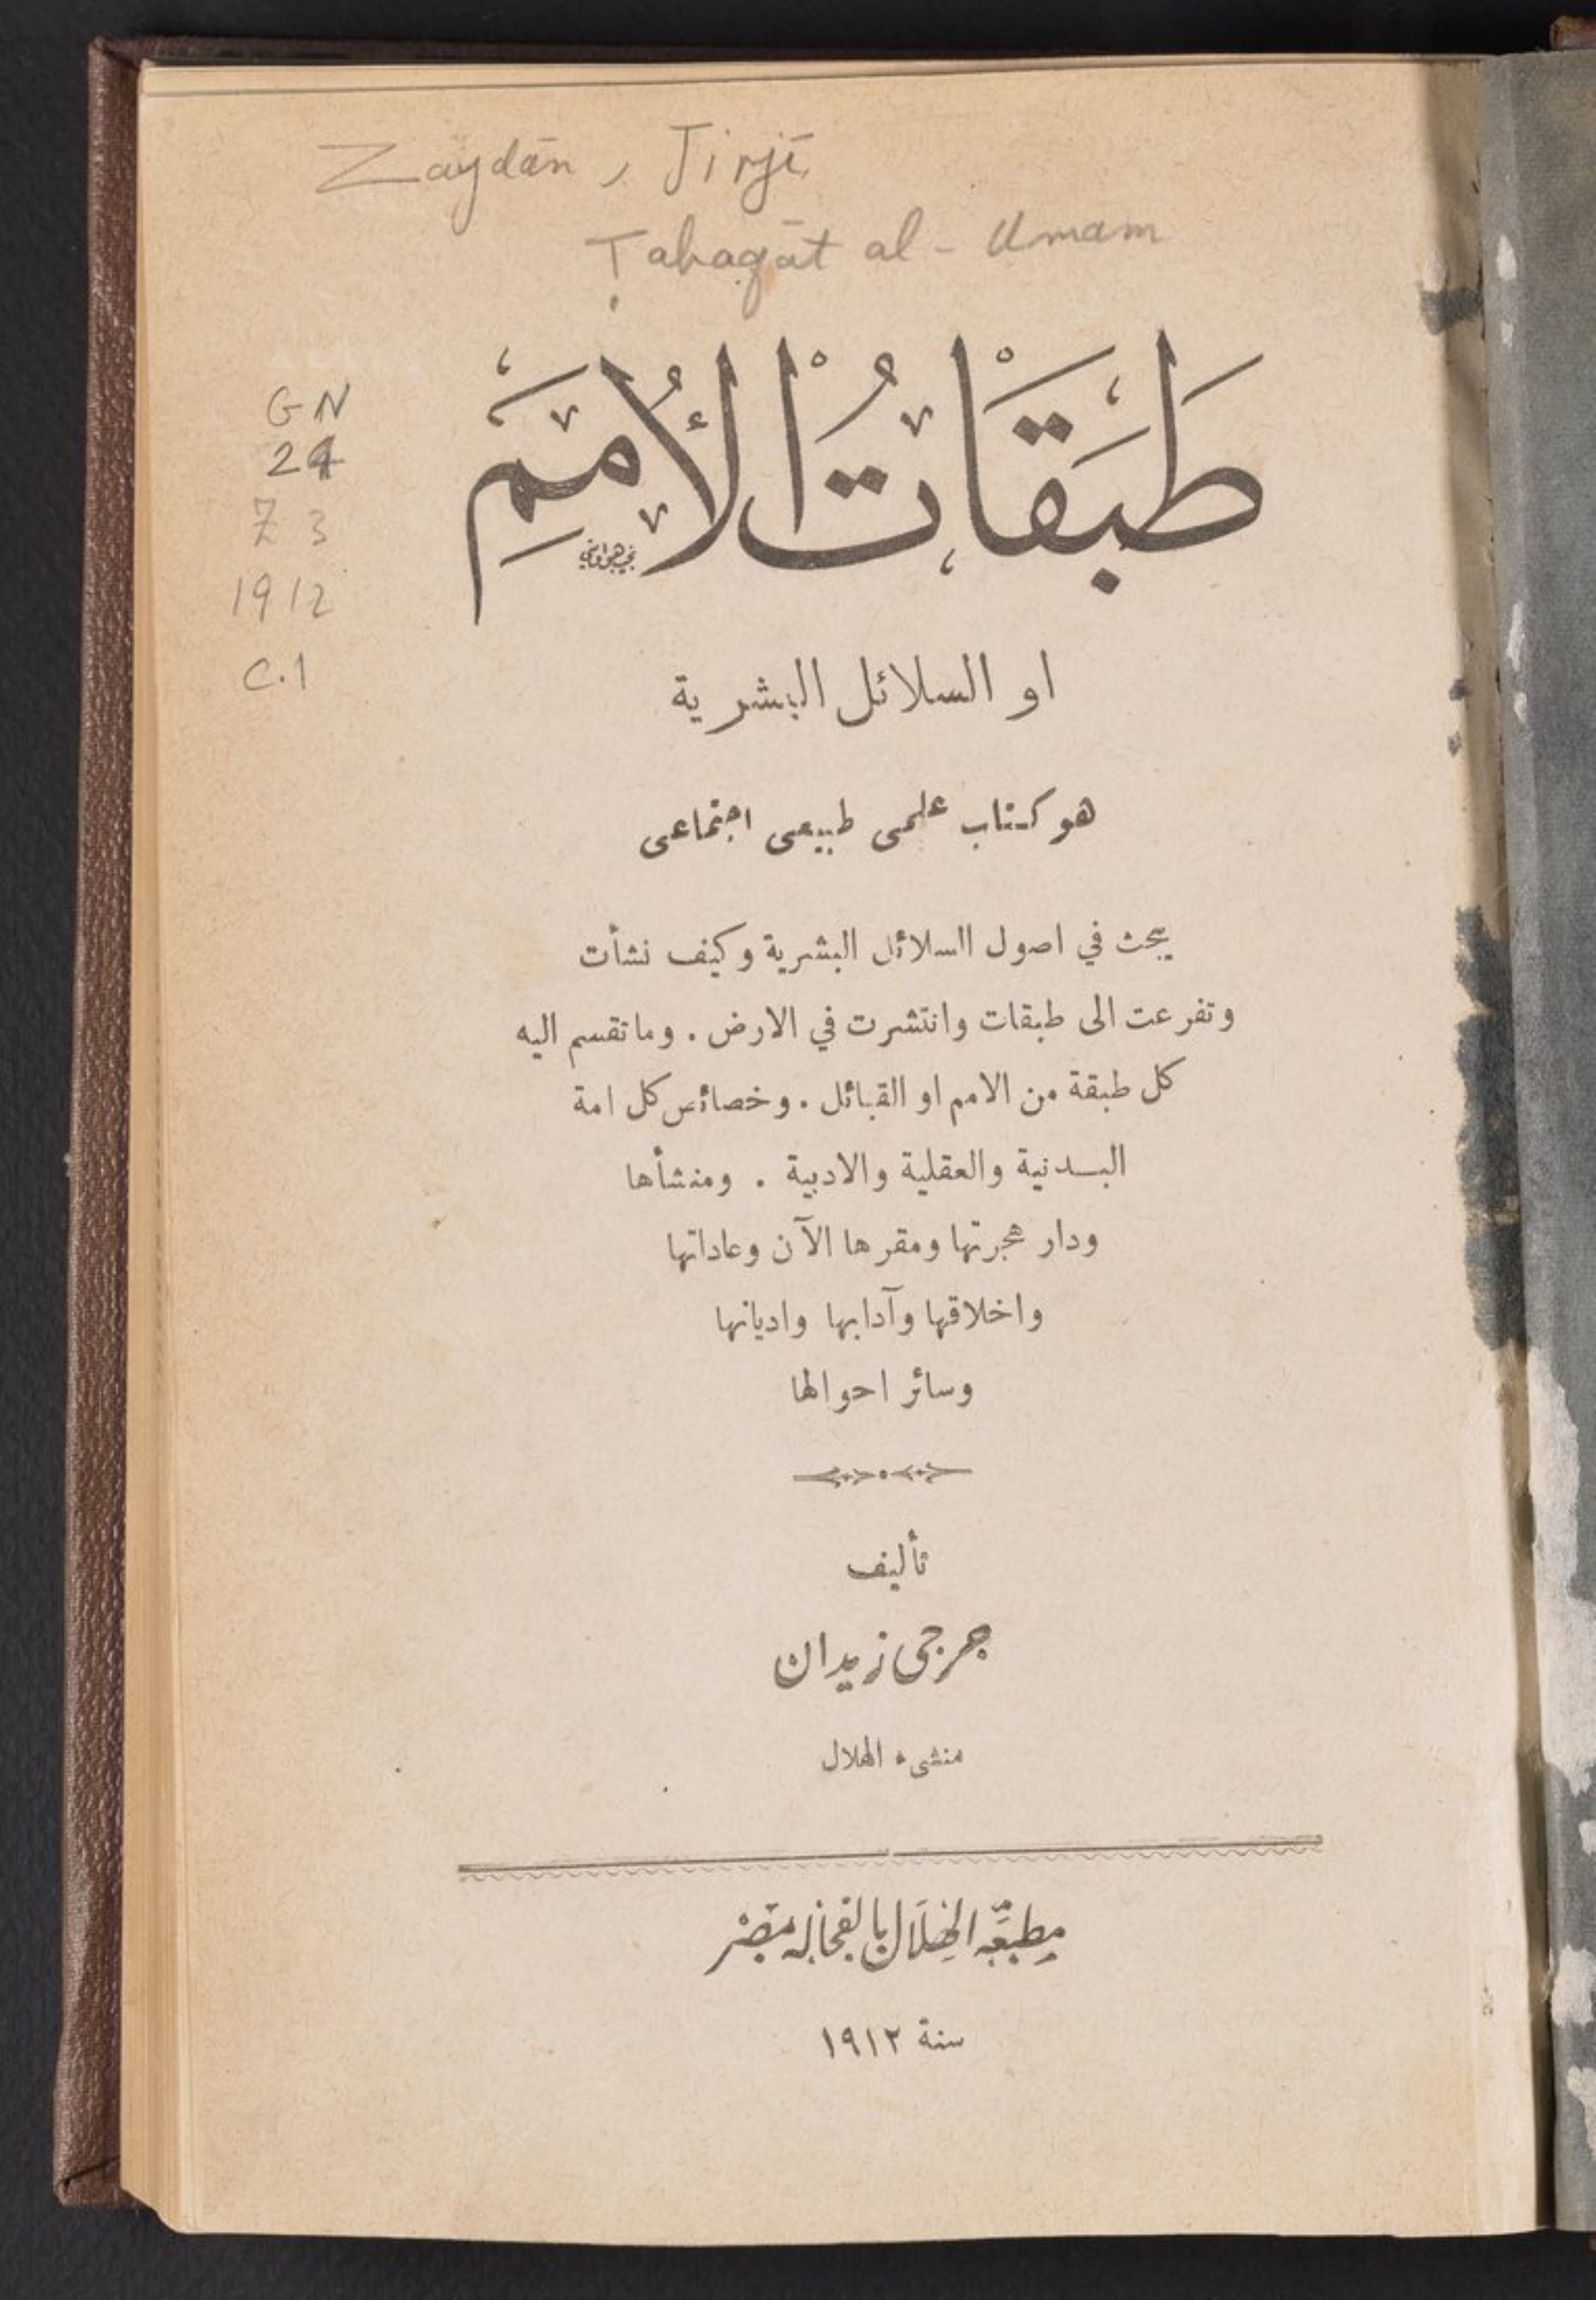 Zaydān, Jirjī
Ṭabaqāt al-Umam
GN
24
Z3
1912
C.1
طَبَقَاتُ الْأُمَمِ
او السلائل البشرية
هو كتاب علمى طبيعى اجتماعى
يبحث في اصول السلائل البشرية وكيف نشأت
وتفرعت الى طبقات وانتشرت في الارض . وما تقسم اليه
كل طبقة من الامم او القبائل . وخصائص كل امة
البدنية والعقلية والادبية . ومنشأها
ودار هجرتها ومقرها الآن وعاداتها
واخلاقها وآدابها واديانها
وسائر احوالها
تأليف
جرجى زيدان
منشىء الهلال
مطبعة الهلال بالفجالة بمصر
سنة ١٩١٢